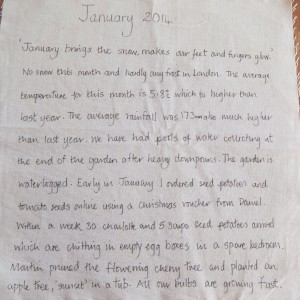 January 2014
'January brings the snow, makes our feet and fingers glow.'
No snow this month and hardly any frost in London. The average
temperature for this month is 5.8°C which is higher than
last year. The average rainfall was 173 much higher
than last year. We have had pools of water collecting at
the end of the garden after heavy downpours. The garden is
waterlogged. Early in January I ordered seed potatoes and
tomato seeds online using a Christmas voucher from Daniel.
Within a week 30 charlotte and 5 seed potatoes arrived
which are chitting in empty egg boxes in a spare bedroom.
Martin pruned the flowering cherry tree and planted an
apple tree, 'sunset' in a tub. All our bulbs are growing fast.